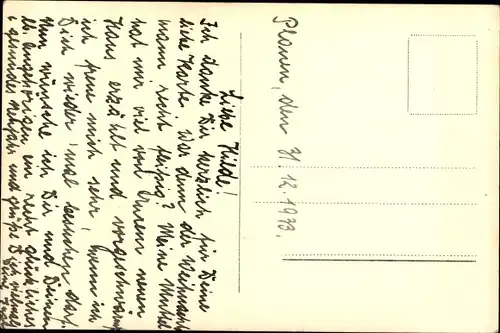 Plauen, den 31.12.1933.
Liebe Hilde!
Ich danke Dir herzlich für Deine
liebe Karte. War denn der Weihnachts-
mann recht fleißig? Meine Muttel
hat mir viel von Eurem neuen
Haus erzählt und vorgeschwärmt
ich freue mich sehr, wenn ich
Dich wieder 'mal besuchen darf.
Nun wünsche ich Dir und Deinen
lb. Angehörigen ein recht glückliches
u. gesundes Neujahr und grüße Dich vielmals